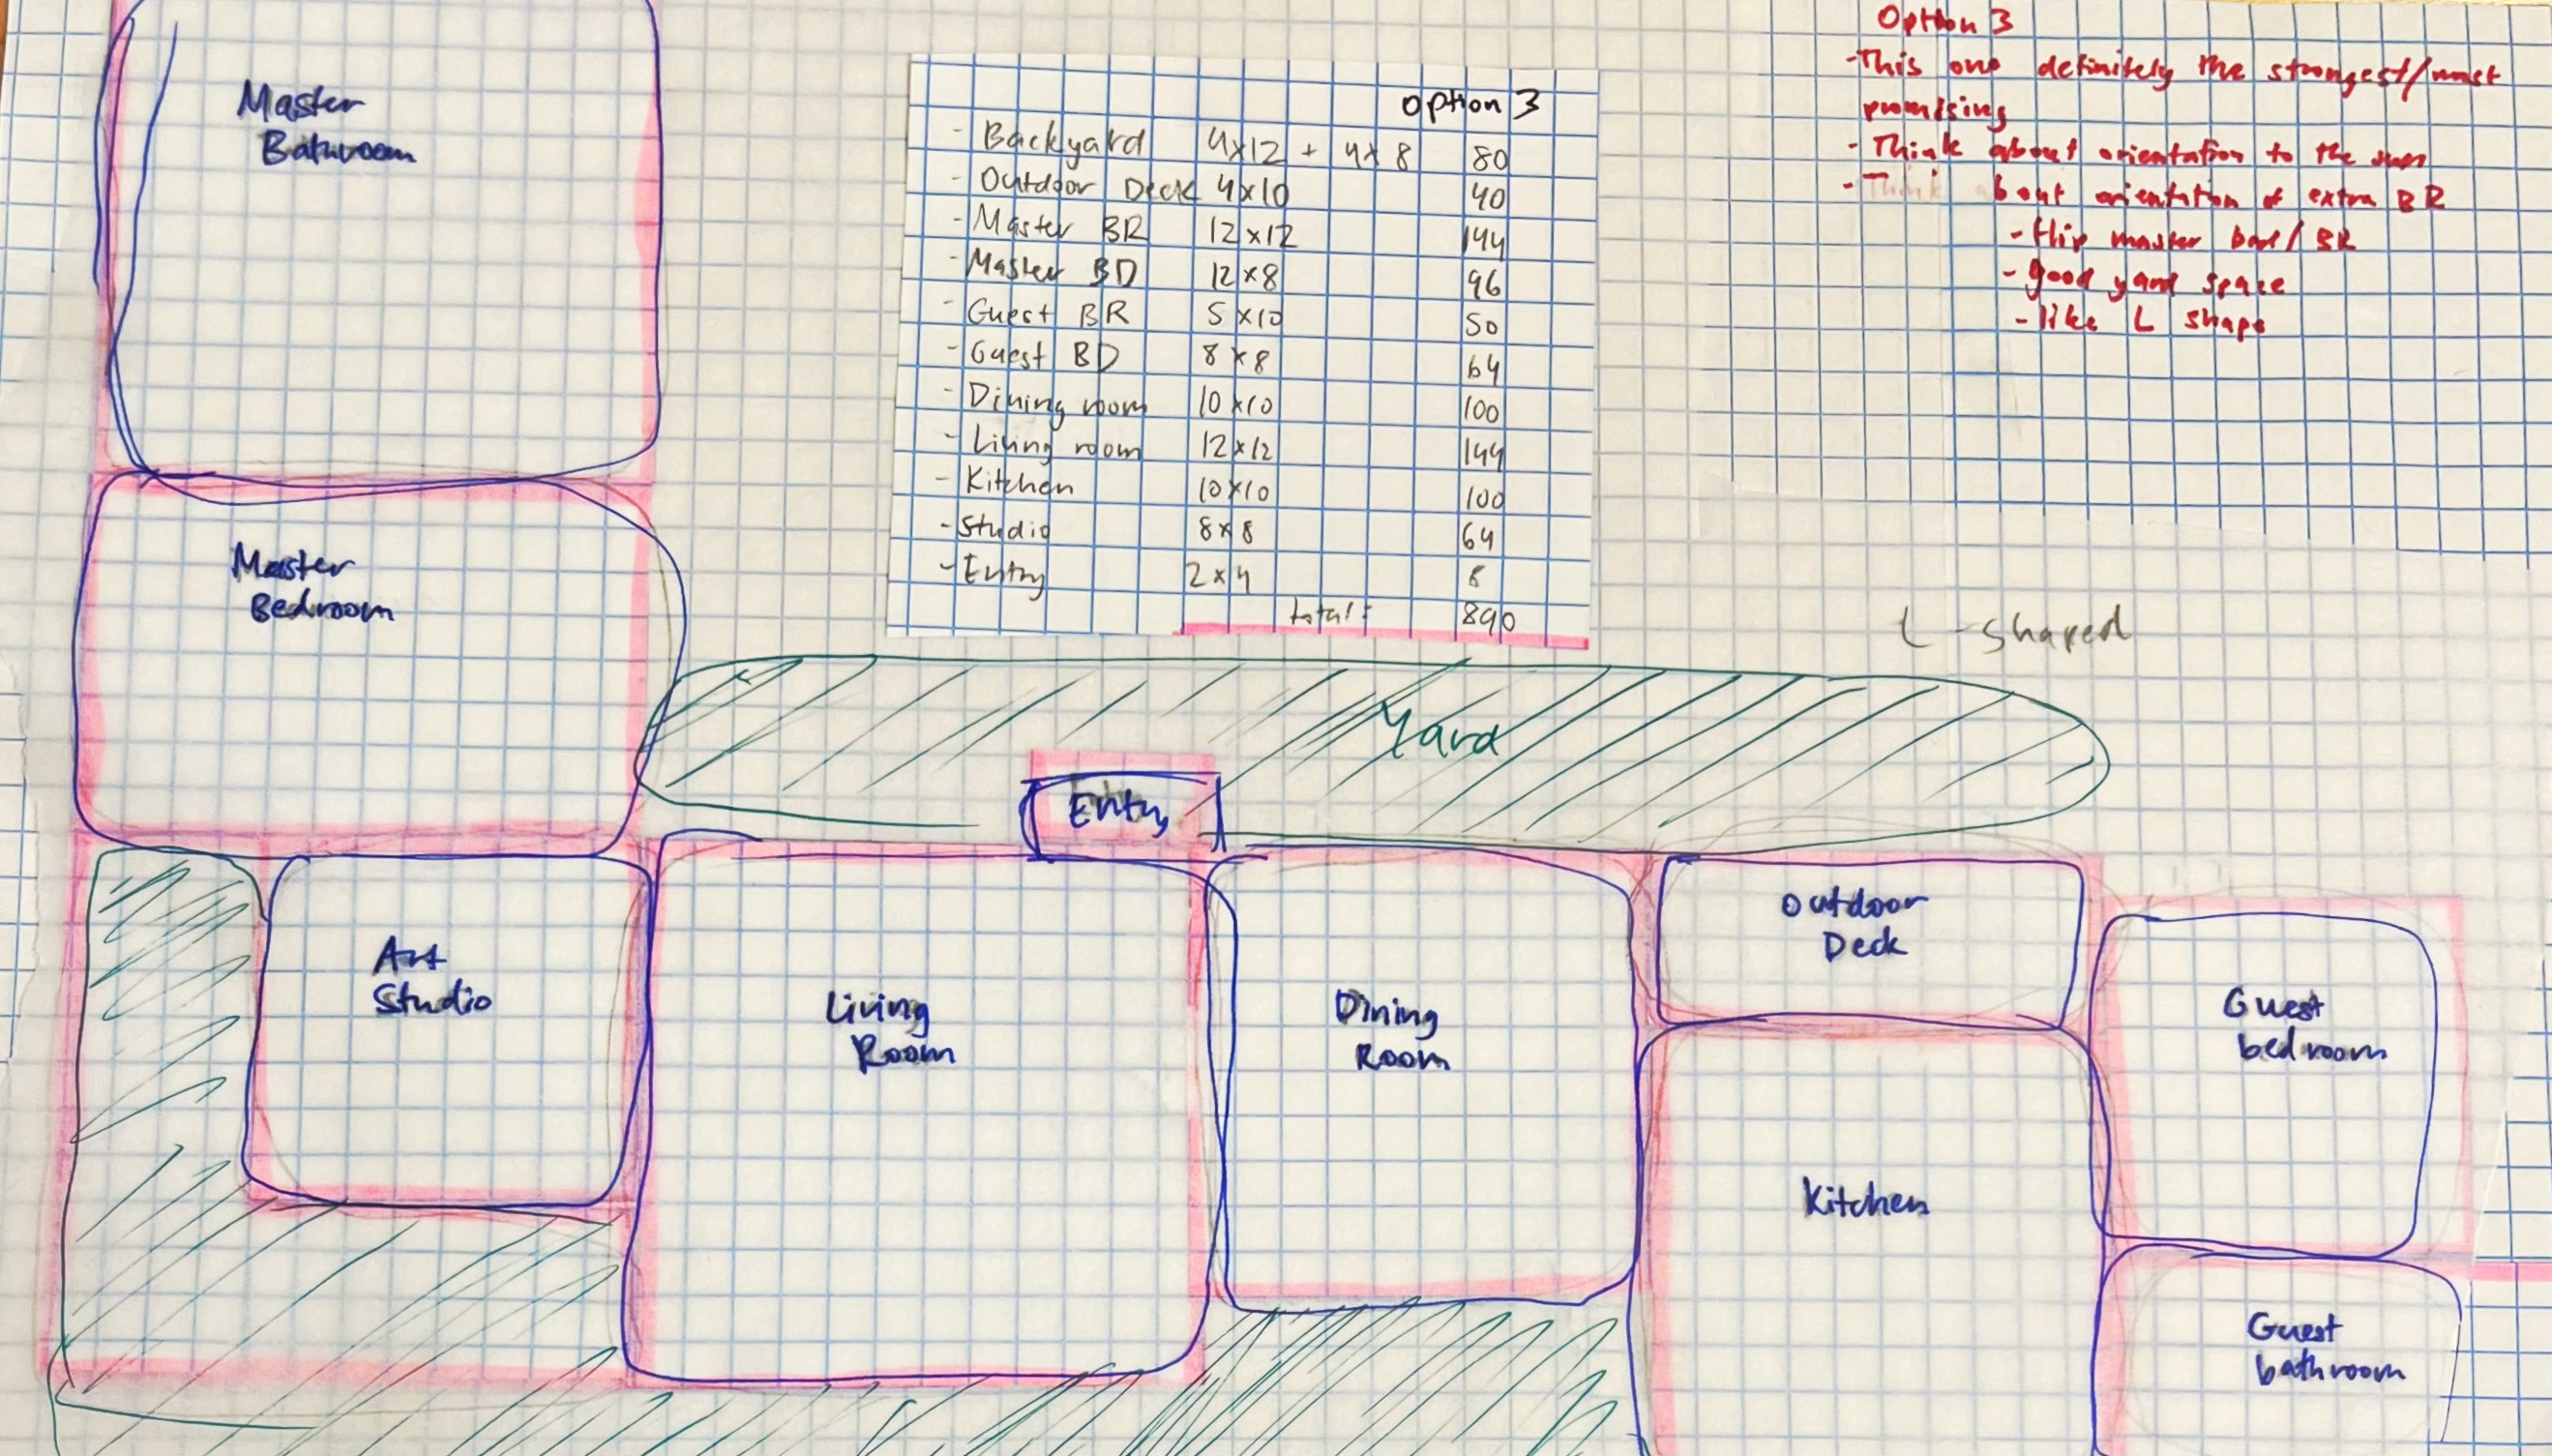 Master
Bathroom
Master
Bedroom
Option 3
- Backyard 4x12 + 4x8 80
- Outdoor Deck 4x10 40
- Master BR 12x12 144
- Master BD 12x8 96
- Guest BR 5x10 50
- Guest BD 8x8 64
- Dining room 10x10 100
- Living room 12x12 144
- Kitchen 10x10 100
- Studio 8x8 64
- Entry 2x4 8
total: 890
Option 3
- This one definitely the strongest/most
promising
- Think about orientation to the sun
- Think about orientation of extra BR
- flip master / BR
- good yard space
- like L shape
L-shaped
Yard
Entry
Art
Studio
Living
Room
Dining
Room
Outdoor
Deck
Kitchen
Guest
bedroom
Guest
bathroom